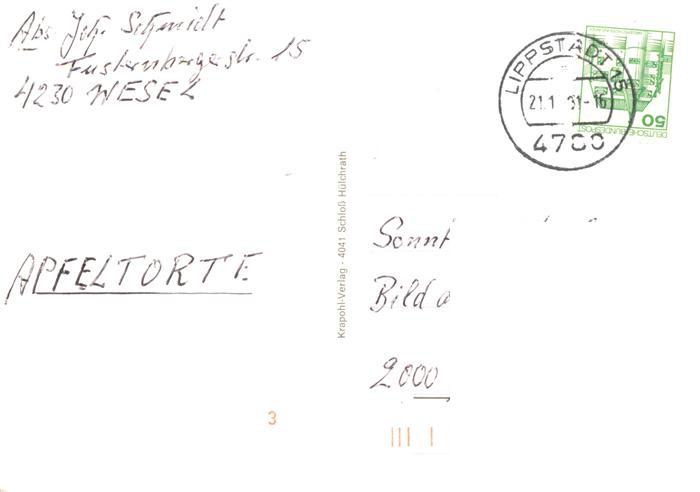 Abs. Joh. Schmidt
Fusternbergerstr. 15
4230 WESEL
LIPPSTADT 15
21.1 81-16
4780
50
DEUTSCHE BUNDESPOST
APFELTORTE
Krapohl-Verlag - 4041 Schloß Hülchrath
Sonnt
Bild a
2000
3